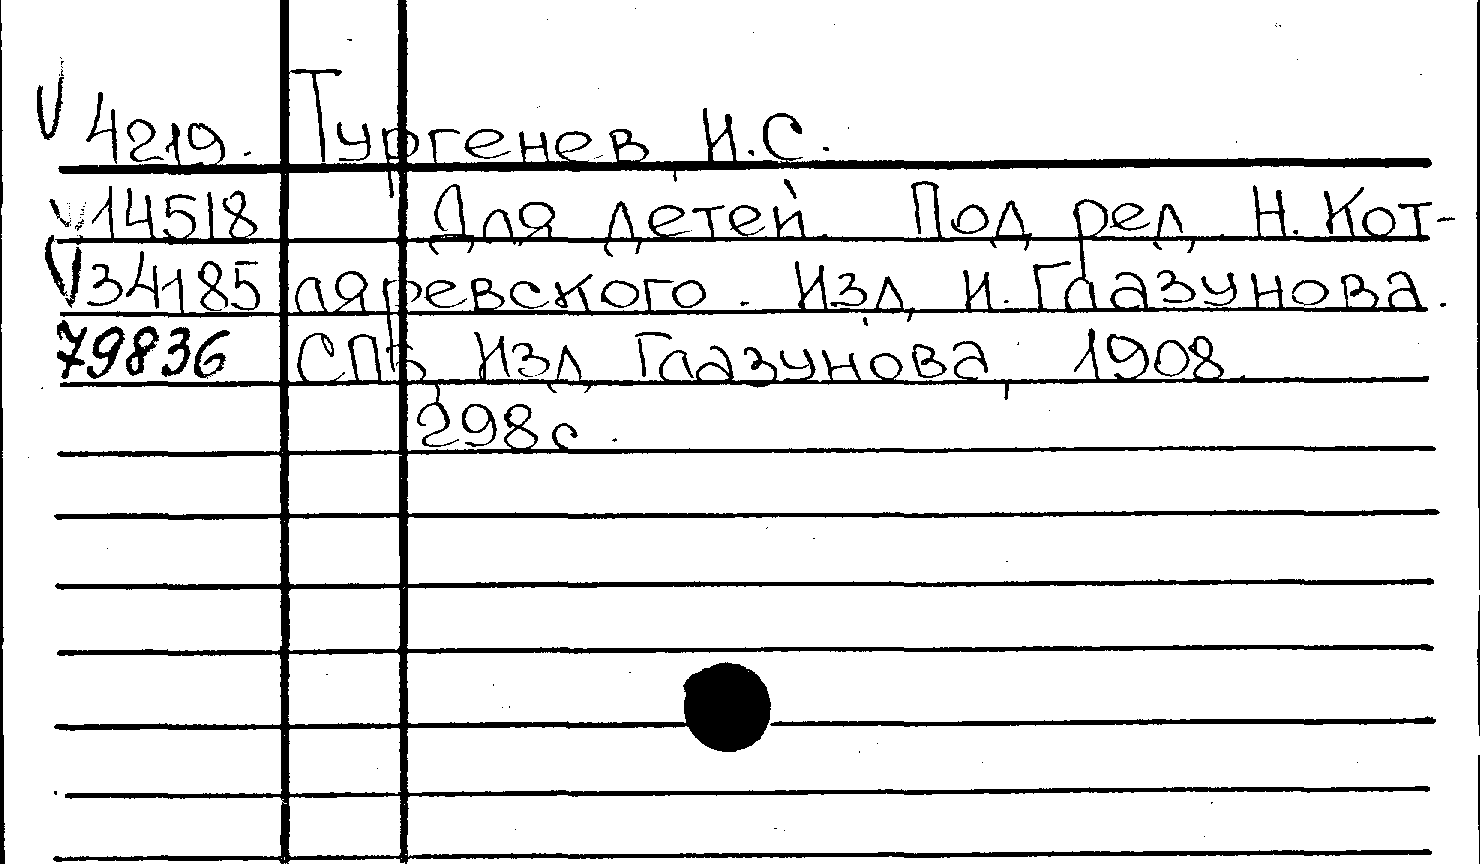 V 4219. Тургенев И.С.
V 14518 Для детей. Под ред. Н. Кот-
V 34185 ляревского. Изд. И. Глазунова.
79836 СПб, Изд. Глазунова, 1908.
298 с.